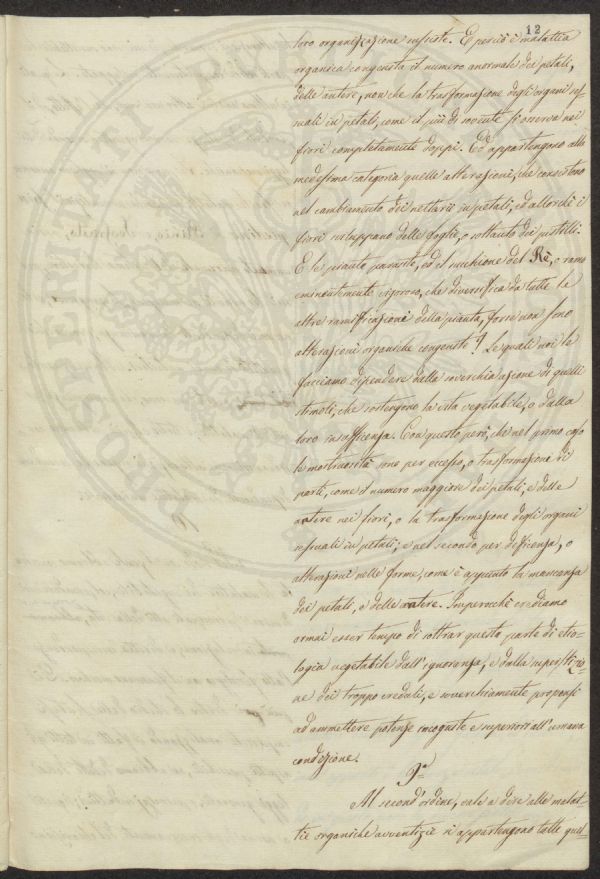 12
loro organizzazione insiste. E perciò è malattia
organica congenita il numero anormale dei petali,
delle antere, non che la trasformazione degli organi ses-
suali in petali, come il più di sovente si osserva nei
fiori completamente doppi. Ed appartengono alla
medesima categoria quelle alterazioni, che consistono
nel cambiamento dei nettarii in petali, ed allorchè i
fiori sviluppano delle foglie, o soltanto dei pistilli.
E le piante parasite, ed il succhione del Rè, o ramo
eminentemente vigoroso, che diversifica da tutte le
altre ramificazioni della pianta, forse non sono
alterazioni organiche congenite? Le quali noi le
facciamo dipendere dalla soverchia azione di quelli
stimoli, che sostengono la vita vegetabile, o dalla
loro insufficenza. Con questo però, che nel primo caso
le mostruosità sono per eccesso, o trasformazione di
parti, come il numero maggiore dei petali, e delle
antere nei fiori, o la trasformazione degli organi
sessuali in petali; e nel secondo per deficenza, o
alterazioni nelle forme, come è appunto la mancanza
dei petali, o delle antere. Imperocchè crediamo
ormai esser tempo di sottrar questa parte di etio-
logia vegetabile dall'ignoranza, e dalla superstizio-
ne dei troppo creduli, e soverchiamente propensi
ad ammettere potenze incognite e superiori all'umana
condizione.
Al second'ordine, vale a dire alle malat-
tie organiche avventizie si appartengono tutte quel-
PROSPERITATI PUBLICAE